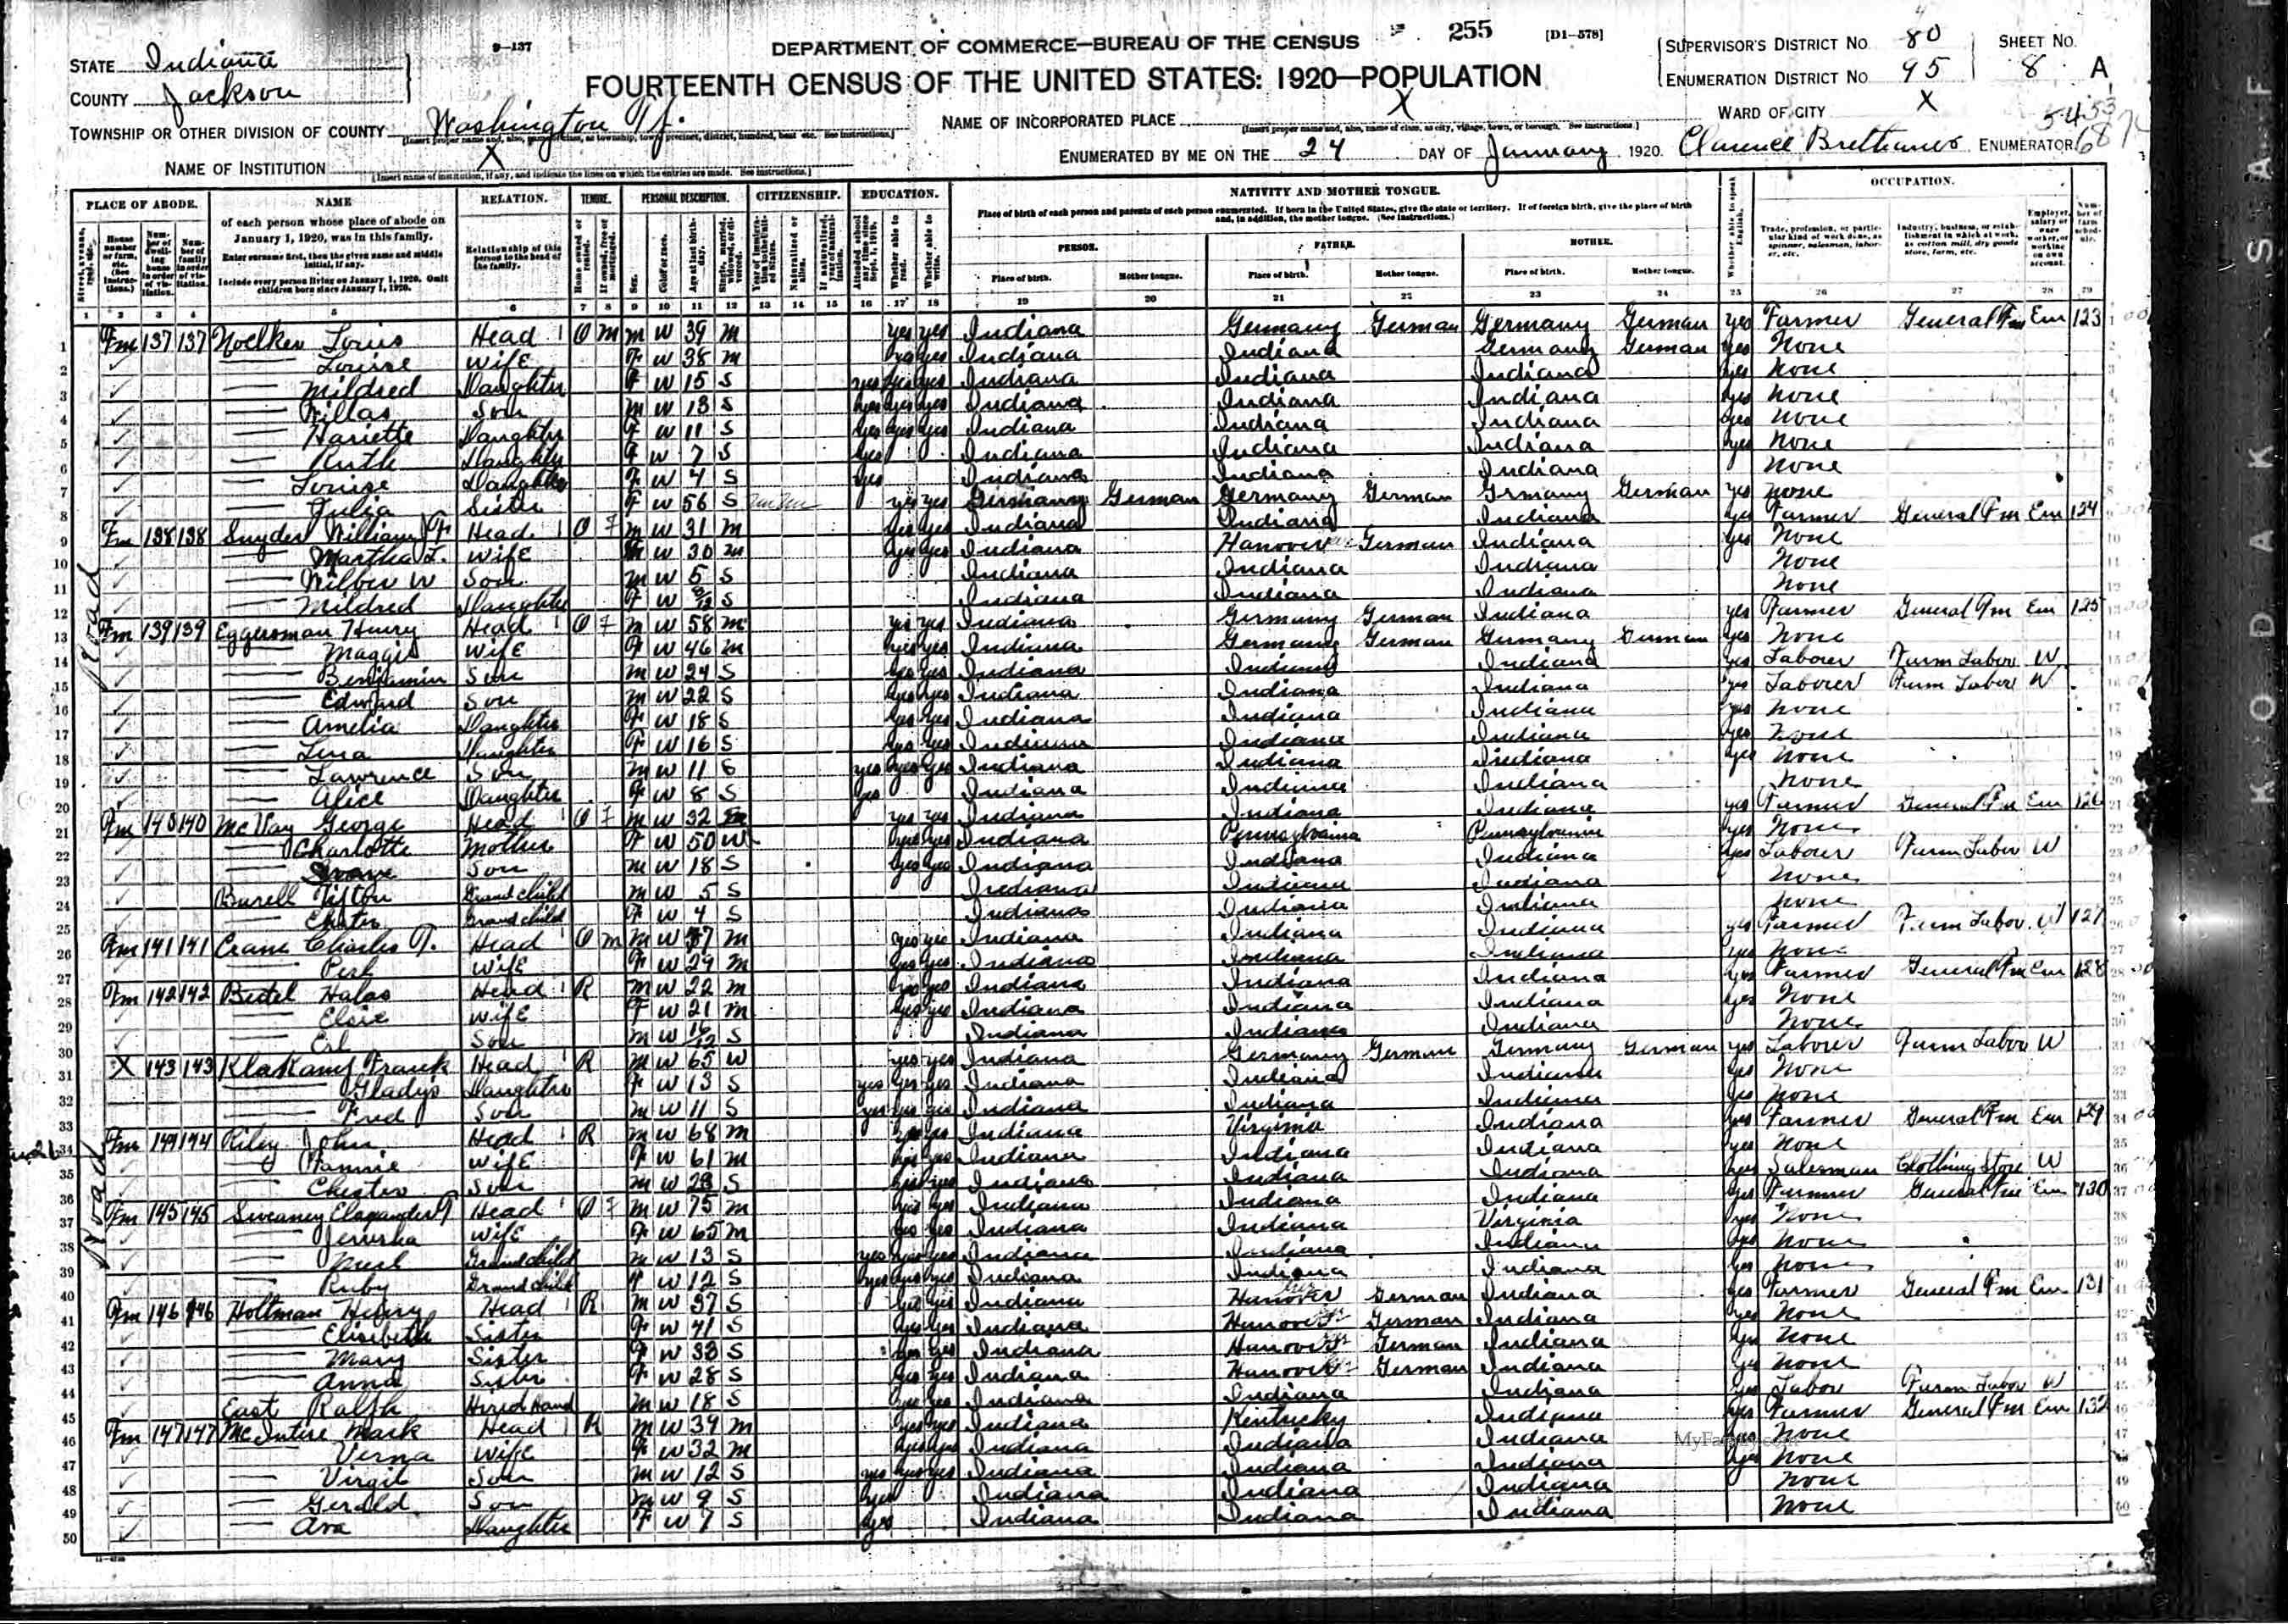 9-137
DEPARTMENT OF COMMERCE—BUREAU OF THE CENSUS 255 [D1-578]
FOURTEENTH CENSUS OF THE UNITED STATES: 1920—POPULATION
STATE Indiana
COUNTY Jackson
TOWNSHIP OR OTHER DIVISION OF COUNTY Washington
NAME OF INSTITUTION X
NAME OF INCORPORATED PLACE X
ENUMERATED BY ME ON THE 24 DAY OF January, 1920. Clarence ENUMERATOR
SUPERVISOR'S DISTRICT NO. 80
ENUMERATION DISTRICT NO. 95
SHEET NO. 8 A
WARD OF CITY X
PLACE OF ABODE. NAME RELATION. TENURE. PERSONAL DESCRIPTION. CITIZENSHIP. EDUCATION. NATIVITY AND MOTHER TONGUE. OCCUPATION.
of each person whose place of abode on January 1, 1920, was in this family.
Enter surname first, then the given name and middle initial, if any.
Include every person living on January 1, 1920. Omit children born since January 1, 1920.
Relationship of this person to the head of the family.
Place of birth of each person and parents of each person enumerated. If born in the United States, give the state or territory. If of foreign birth, give the place of birth and, in addition, the mother tongue. (See instructions.)
PERSON. FATHER. MOTHER.
Place of birth. Mother tongue. Place of birth. Mother tongue. Place of birth. Mother tongue.
1 2 3 4 5 6 7 8 9 10 11 12 13 14 15 16 17 18 19 20 21 22 23 24 25 26 27 28 29
1 Fm 137 137 Noelker Louis Head O M M W 39 M yes yes Indiana Germany German Germany German yes Farmer General Fm Em 123
2 Louise Wife F W 38 M yes yes Indiana Indiana Germany German yes None
3 Mildred Daughter F W 15 S yes yes yes Indiana Indiana Indiana yes None
4 Son M W 13 S yes yes yes Indiana Indiana Indiana yes None
5 Hariette Daughter F W 11 S yes yes yes Indiana Indiana Indiana yes None
6 Ruth Daughter F W 7 S yes Indiana Indiana Indiana yes None
7 Louise Daughter F W 4 S yes Indiana Indiana Indiana None
8 Julia Sister F W 56 S yes yes Germany German Germany German Grmany German yes None
9 Fm 138 138 Snyder William Head O F M W 31 M yes yes Indiana Indiana Indiana yes Farmer General Fm Em 124
10 Martha L. Wife F W 30 M yes yes Indiana Hanover German Indiana yes None
11 Wilber W Son M W 5 S Indiana Indiana Indiana None
12 Mildred Daughter F W S Indiana Indiana Indiana None
13 Fm 139 139 Eggersman Henry Head O F M W 58 M yes yes Indiana Germany German Indiana yes Farmer General Fm Em 125
14 Maggie Wife F W 46 M yes yes Indiana Germany German Germany German yes None
15 Benjamin Son M W 24 S yes yes Indiana Indiana Indiana yes Laborer Farm Labor W
16 Edward Son M W 22 S yes yes Indiana Indiana Indiana yes Laborer Farm Labor W
17 Amelia Daughter F W 18 S yes yes Indiana Indiana Indiana yes None
18 Lina Daughter F W 16 S yes yes Indiana Indiana Indiana yes None
19 Lawrence Son M W 11 S yes yes yes Indiana Indiana Indiana yes None
20 Alice Daughter F W 8 S yes Indiana Indiana Indiana None
21 Fm 140 140 McVay George Head O F M W 32 yes yes Indiana Indiana Indiana yes Farmer General Fm Em 126
22 Charlotte Mother F W 50 W yes yes Indiana Pennsylvania Pennsylvania yes None
23 Son M W 18 S yes yes Indiana Indiana Indiana yes Laborer Farm Labor W
24 Burell Grand child M W 5 S Indiana Indiana Indiana None
25 Grand child F W 4 S Indiana Indiana Indiana None
26 Fm 141 141 Crane Charles Head O M M W 37 M yes yes Indiana Indiana Indiana yes Farmer Farm Labor W 127
27 Wife F W 29 M yes yes Indiana Indiana Indiana yes None
28 Fm 142 142 Head R M W 22 M yes yes Indiana Indiana Indiana yes Farmer General Fm Em 128
29 Elsie Wife F W 21 M yes yes Indiana Indiana Indiana yes None
30 Son M W S Indiana Indiana Indiana None
31 X 143 143 KlaKamp Frank Head R M W 65 W yes yes Indiana Germany German Germany German yes Laborer Farm Labor W
32 Gladys Daughter F W 13 S yes yes yes Indiana Indiana Indiana yes None
33 Fred Son M W 11 S yes yes yes Indiana Indiana Indiana yes None
34 Fm 144 144 Riley John Head R M W 68 M yes yes Indiana Virginia Indiana yes Farmer General Fm Em 129
35 Wife F W 61 M yes yes Indiana Indiana Indiana yes None
36 Chester Son M W 23 S yes yes Indiana Indiana Indiana yes Salesman Clothing Store W
37 Fm 145 145 Sweaney Head O F M W 75 M yes yes Indiana Indiana Indiana yes Farmer General Fm Em 130
38 Jerusha Wife F W 65 M yes yes Indiana Indiana Virginia yes None
39 Grand child M W 13 S yes yes yes Indiana Indiana Indiana yes None
40 Ruby Grand child F W 12 S yes yes yes Indiana Indiana Indiana yes None
41 Fm 146 146 Holtman Henry Head R M W 37 S yes yes Indiana Hanover German Indiana yes Farmer General Fm Em 131
42 Elisebeth Sister F W 41 S yes yes Indiana Hanover German Indiana yes None
43 Mary Sister F W 33 S yes yes Indiana Hanover German Indiana yes None
44 Anna Sister F W 28 S yes yes Indiana Hanover German Indiana yes None
45 East Ralph Hired Hand M W 18 S yes yes Indiana Indiana Indiana yes Labor Farm Labor W
46 Fm 147 147 McIntire Mark Head R M W 34 M yes yes Indiana Kentucky Indiana yes Farmer General Fm Em 132
47 Verna Wife F W 32 M yes yes Indiana Indiana Indiana yes None
48 Virgil Son M W 12 S yes yes yes Indiana Indiana Indiana yes None
49 Gerald Son M W 9 S yes Indiana Indiana Indiana None
50 Ava Daughter F W 7 S yes Indiana Indiana Indiana None
KODAK SAFE